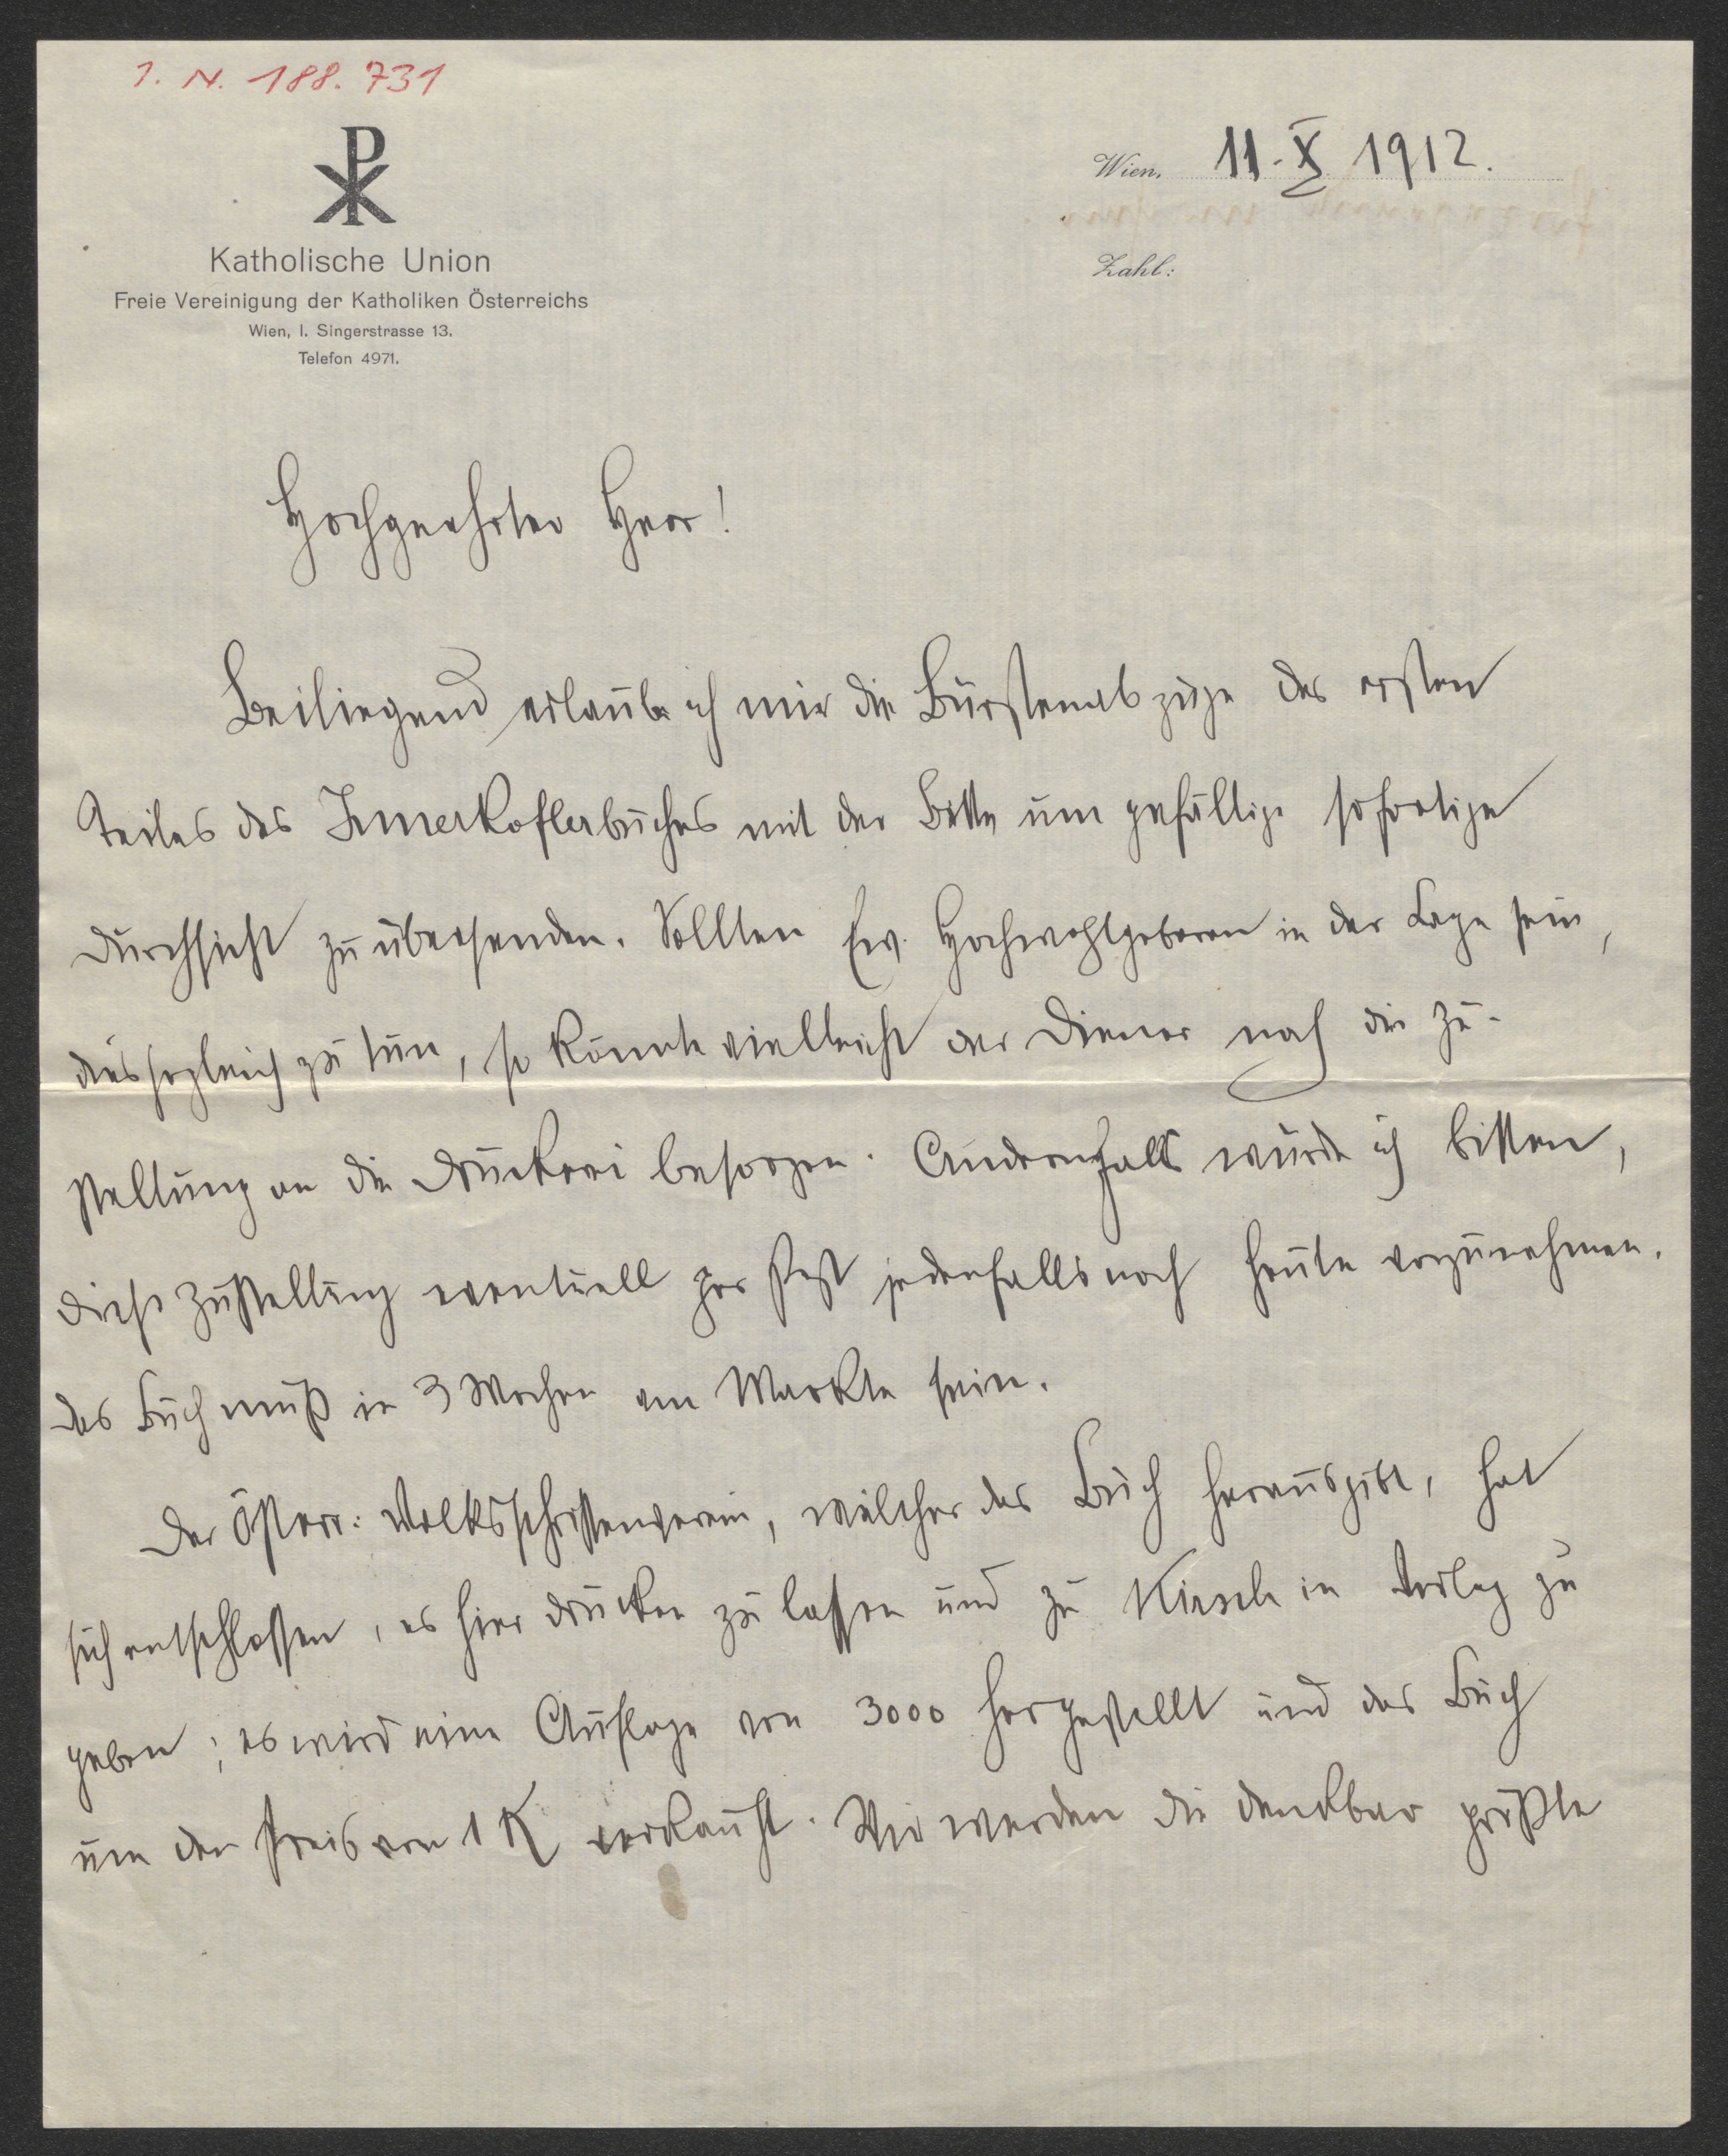 I. N. 188.731
Katholische Union
Freie Vereinigung der Katholiken Österreichs
Wien, I. Singerstrasse 13.
Telefon 4971.
Wien, 11. X 1912.
Zahl:
Hochgeehrter Herr!
Beiliegend erlaube ich mir die Bürstenabzüge des ersten
Teiles des Innerkoflerbuches mit der Bitte um gefällige sofortige
Durchsicht zu übersenden. Sollten Ew. Hochwohlgeboren in der Lage sein,
dies sogleich zu tun, so könnte vielleicht der Diener noch die Zu-
stellung an die Druckerei besorgen. Andernfalls würde ich bitten,
diese Zustellung eventuell per Post jedenfalls noch heute vorzunehmen.
Das Buch muß in 3 Wochen am Markte sein.
Der Österr: Volksschriftenverein, welcher das Buch herausgibt, hat
sich entschlossen, es hier drucken zu lassen und zu Kirsch in Verlag zu
geben; es wird eine Auflage von 3000 hergestellt und das Buch
um den Preis von 1 K verkauft. Wir werden die denkbar größte